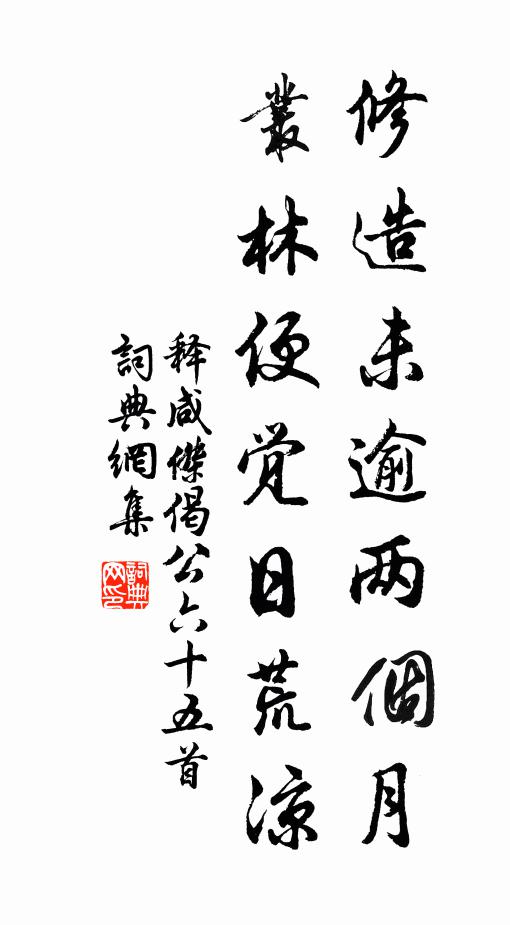 修造未逾两個月
叢林便觉日荒涼
释咸傑偈公六十五首
詞典網集
詞典网印